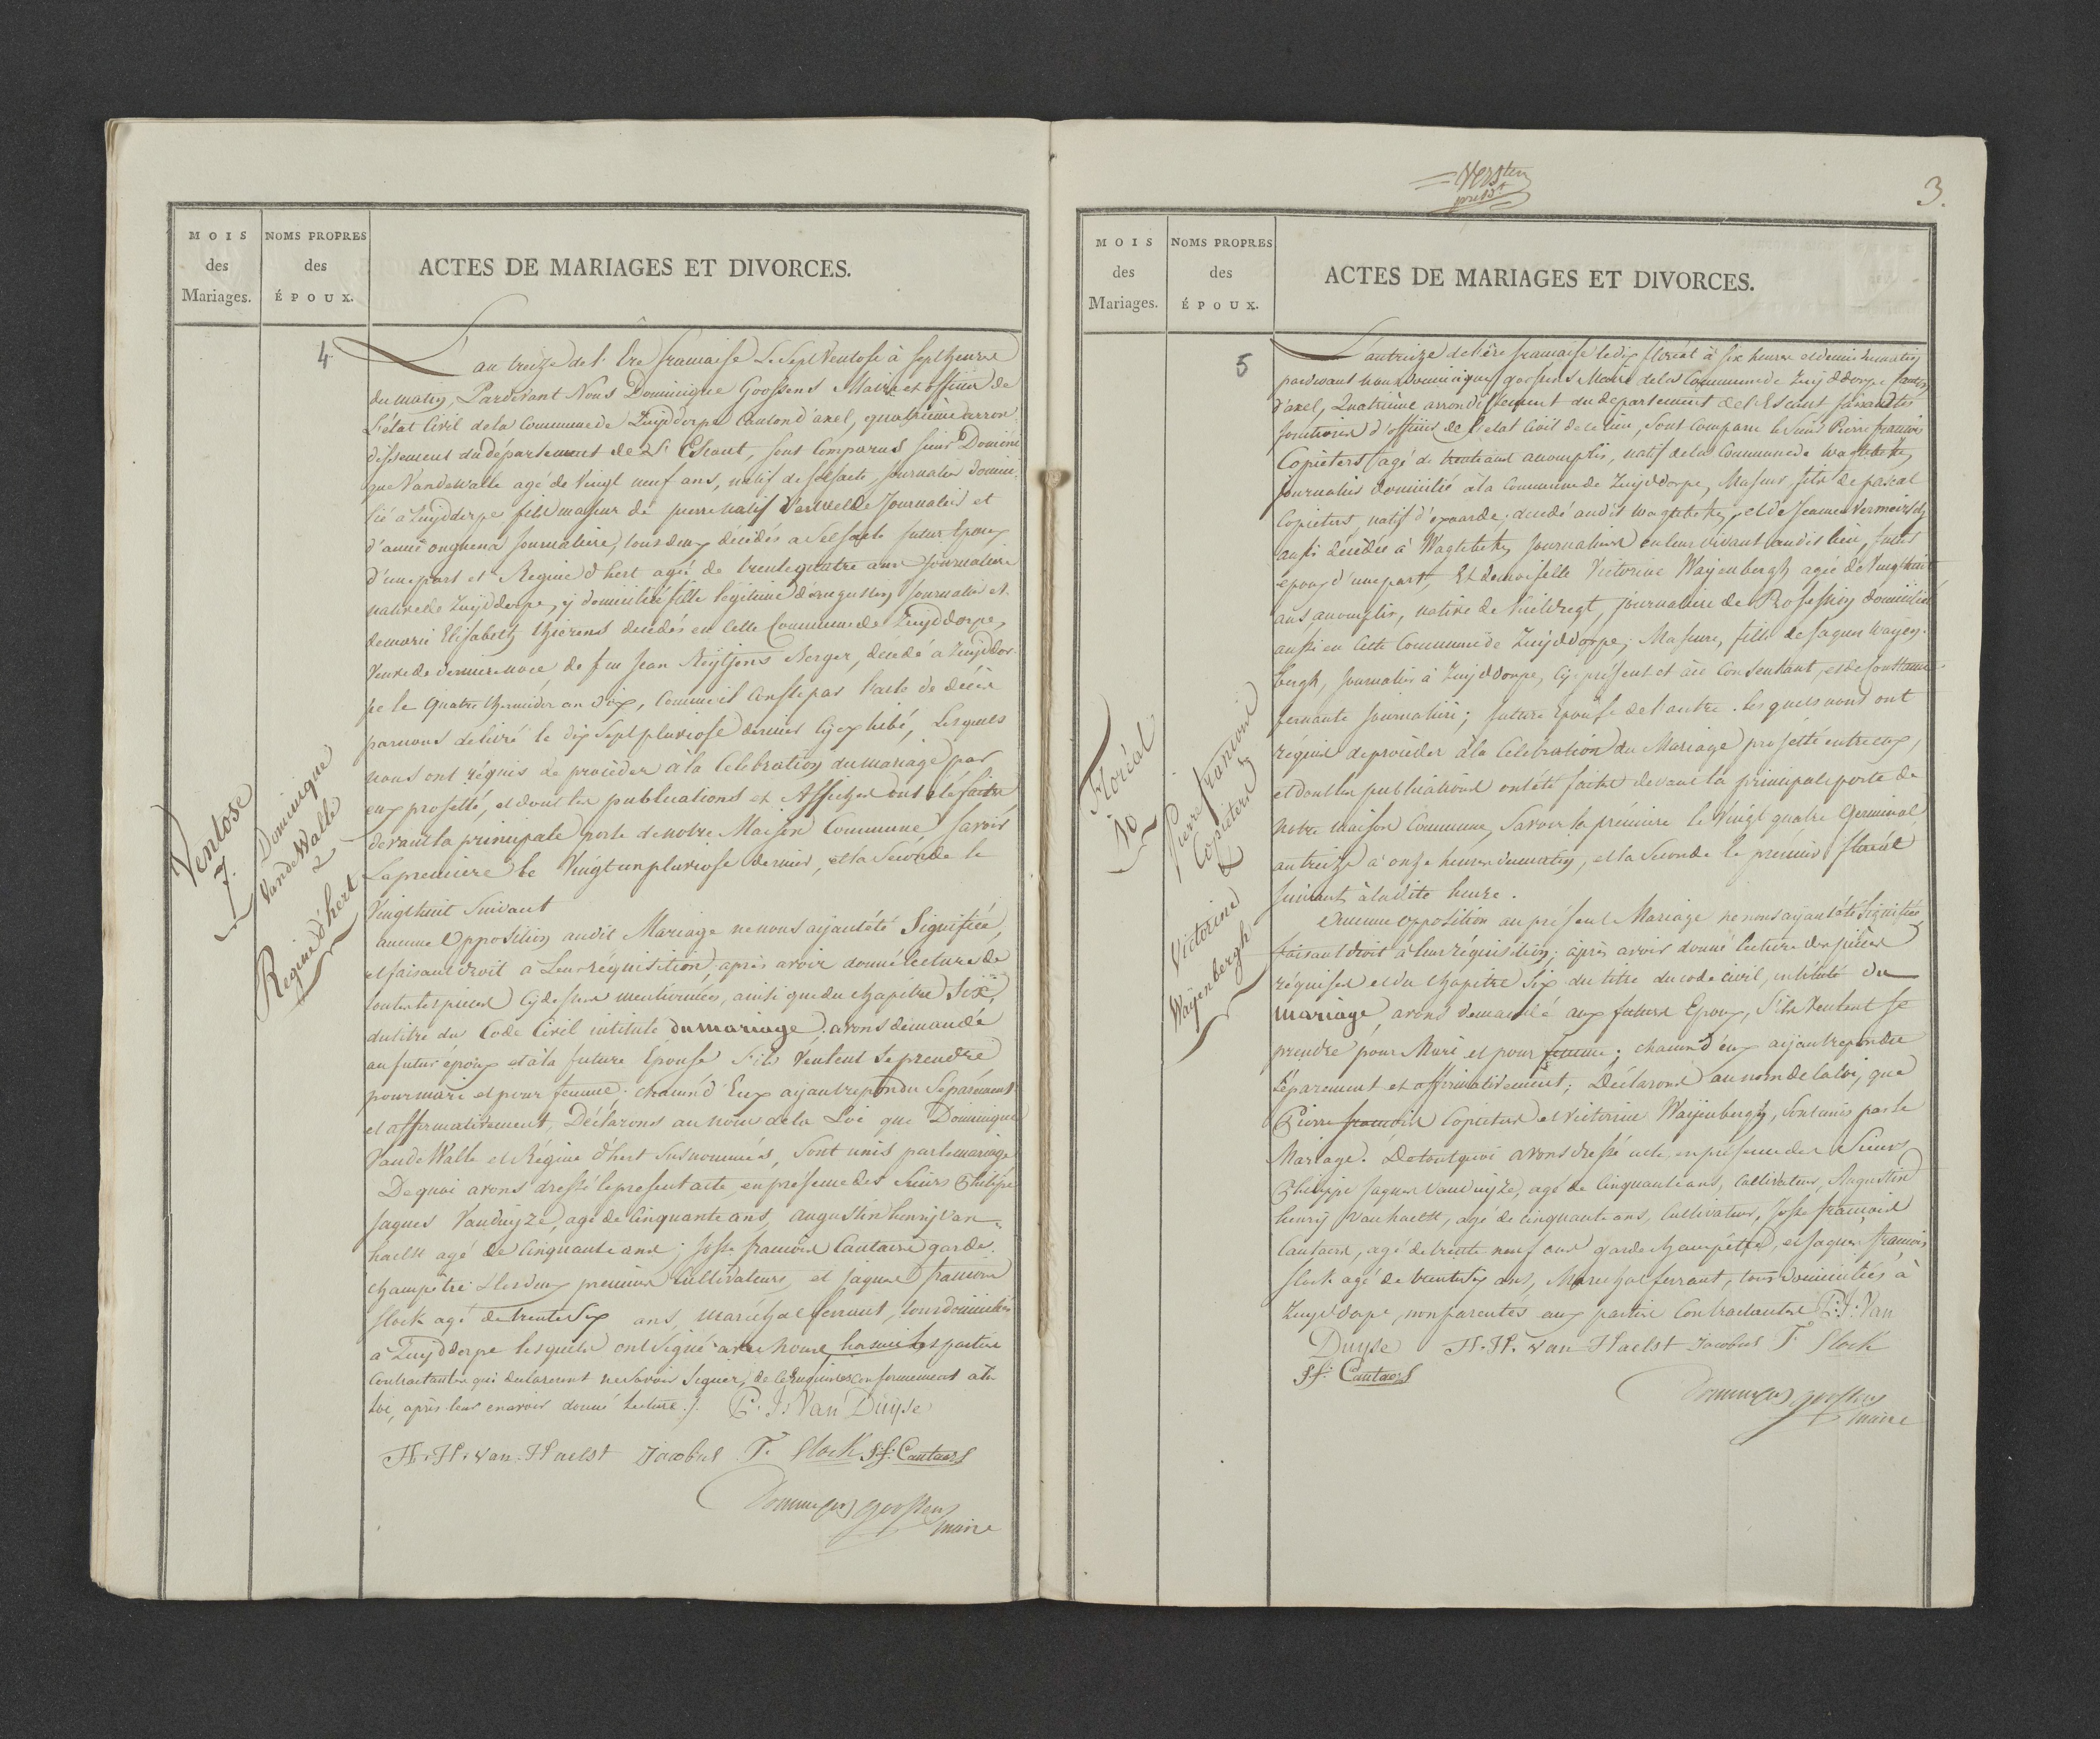 MOIS
des
Mariages.
NOMS PROPRES
des
ÉPOUX.
ACTES DE MARIAGES ET DIVORCES.
Ventose
7.
Dominique
VandeWalle
&
Regine d'hert
4
L'an treize de l'Ere francaise Le Sept Ventose à Sept heures
du matin, Pardevant Nous Dominique Goossens Maire et officier de
L'état Civil de la Commune de Zuijddorpe Canton d'axel, quatrieme darron
dissement du département de L'Escaut, sont Comparus sieur Domini
que Vandewalle agé de Vingt neuf ans, natif de selsaete, journalier domici
lié à Zuijddorpe fils majeur de pierre natif Journalier et
d'anne onghena journaliere, tous deux décédés a Selsaete futur Epoux
d'une part et Regine d'hert agée de trente quatre ans journaliere
native de Zuijddorpe, y domiciliée fille légitime d'augustin journalier et
de marie Elisabeth décédés en cette Commune de Zuijddorpe,
Veuve de derniere noce de feu Jean Berger, decedé a Zuijddor
pe le quatre thermidor an dix, comme il conste par l'acte de décès
par nous delivré le dix sept pluviose dernier ci exhibé, Lesquels
nous ont réquis de procéder a la Celebration du mariage par
eux projetté, et dont les publications et Affiches ont été faites
devant la principale porte de notre Maison Commune, savoir
La premiere le Vingt un pluviose dernier, et la Seconde le
Vingt huit Suivant
aucune Opposition audit Mariage ne nous aijant été Signifiée,
et faisant droit à Leur réquisition, après avoir donné lecture de
toutes les pieces cy dessus mentionnées, ainsi que du chapitre Six,
du titre du Code Civil intitulé du mariage, avons demandé
au futur époux et à la future Epouse S'ils Veulent Se prendre
pour mari et pour femme: chacun d'Eux aijant repondu Séparément
et affirmativement, Déclarons au nom de la Loi que Dominique
VandeWalle et Régine d'hert susnommés, Sont unis par le mariage
De quoi avons dressé le present acte, en présence des Sieurs Philippe
Jaques Vanduyze, agé de Cinquante ans, augustin henrij van
haelst agé de Cinquante ans; josse francois Cautaers garde
champêtre les deux premiers Cultivateurs, et jaques francois
slock agé de trente Six ans, maréchal ferrant, tous domiciliés
a Zuijddorpe lesquels ont Signé avec nous, hormis les parties
Contractantes qui declarerent ne Savoir Signer, de ce requises conformement a la
loi, après leur en avoir donné lecture./. P. J. Van Duijse
H. H. van Haelst Jacobus F. Slock J f: Cautaers
Dominicus goossens
maire
Verstu
presdt
3.
MOIS
des
Mariages.
NOMS PROPRES
des
ÉPOUX.
ACTES DE MARIAGES ET DIVORCES.
Floréal
10
Pierre francois
Copieters
&
Victorine
Waijenbergh
5
L'an treize de l'ère francaise le dix floréal à six heures et demie du matin
pardevant nous Dominique goossens Maire de la Commune de Zuijddorpe Canton
d'axel, Quatrième arrondissement du departement de l'Escaut faisant les
fonctions d'officier de l'etat Civil de ce lieu, Sont comparu le sieur Pierre francois
Copieters agé de trente ans accomplis, natif de la Commune de Wagtebeke,
journalier domicilié a la commune de Zuijddorpe, Majeur, fils de pascal
Copieters, natif d'exaarde, decedé audit Wagtebeke, et de Jeanne Vermeirsch
aussi décédée à Wagtebeke, journaliers en leur vivant audit lieu, futur
epoux d'une part, Et demoiselle Victorine Waijenbergh agée de Vingt huit
ans accomplis, native de journaliere de Profession domiciliée
aussi en cette Commune de Zuijddorpe, Majeure, fille de Jaques Waijen-
bergh, journalier à Zuijddorpe, ci présent et ice Consentant, et de
journaliere; future Epouse de l'autre. lesquels nous ont
réquis de procéder a la Celebration du Mariage projetté entre eux,
et dont les publications ont été faites devant la principale porte de
notre maison Commune, Savoir la première le Vingt quatre Germinal
an treize à onze heures du matin, et la Seconde le premier floréal
Suivant à la dite heure.
Aucune opposition au présent Mariage ne nous aijant été Signifiée,
faisant droit à leur réquisition, après avoir donné lecture des pièces
réquises et du chapitre Six du titre du code civil, intitulé du
mariage, avons demandé aux futurs Epoux, S'ils Veulent se
prendre pour Mari et pour femme; chacun d'eux aijant repondu
Séparement et affirmativement; Déclarons au nom de la loi, que
Pierre francois Copieters et Victorine Waijenbergh, Sont unis par le
Mariage. De tout quoi avons dressé acte, en présence des Sieurs
Philippe Jaques Vanduijze, agé de Cinquante ans, Cultivateur, Augustin
henrij Van haelst, agé de cinquante ans, Cultivateur, Josse francois
Cautaers, agé de trente neuf ans garde champêtre, et Jaques francois
slock agé de trente six ans, Marechal ferrant, tous domiciliés à
Zuijddorpe, non parentés aux parties Contractantes P: J: Van
Duyse H. H. van Haelst Jacobus F Slock
J f: Cautaers
Dominicus goossens
maire